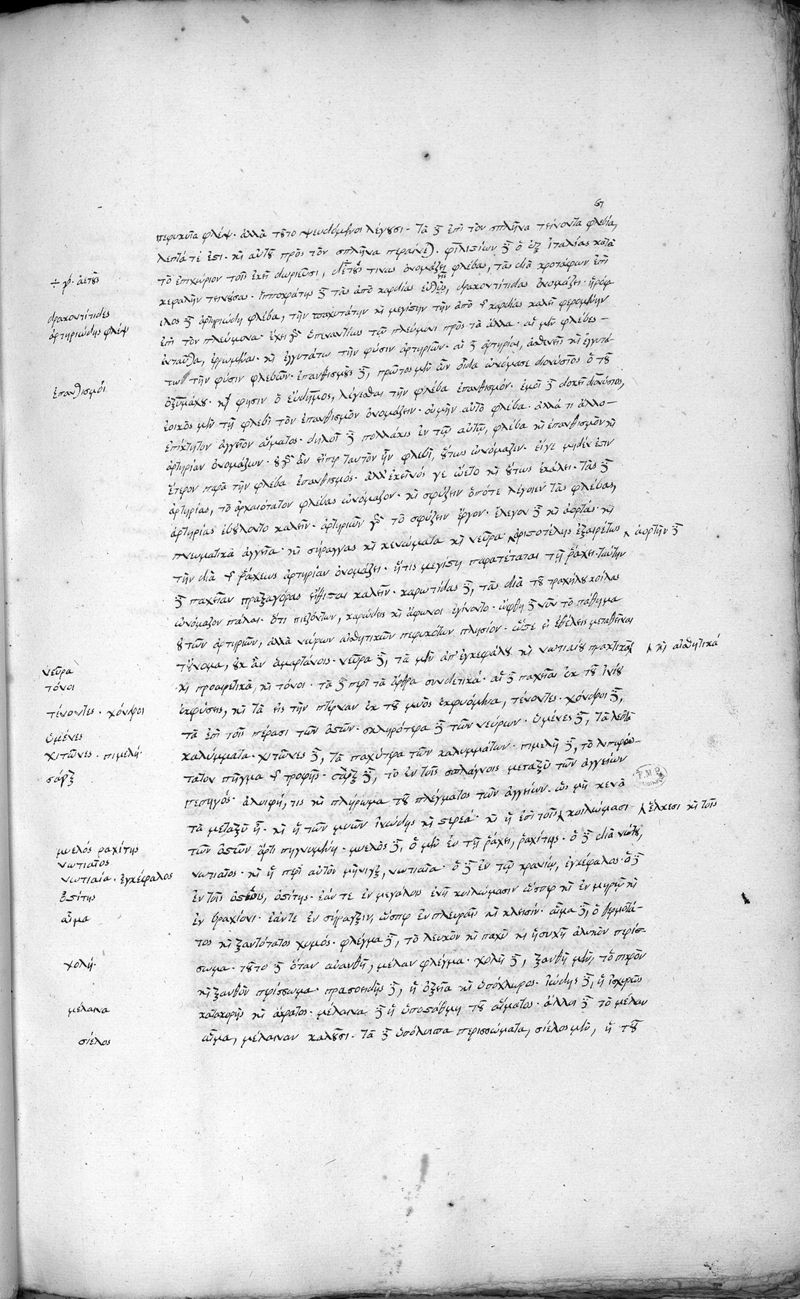 61
πεφυκυῖα φλέψ. ἀλλὰ τȣ͂το ψευδόμενοι λέγȣσι. τὰ δὲ ἐπὶ τὸν σπλῆνα τείνοντα φλεβία,
λεπτά τέ ἐστι. καὶ αὐτȣ͂ πρὸς τὸν σπλῆνα περαίνει. φιλιστίων δὲ ὁ ἐξ ἰταλίας κατὰ
τὸ ἐπιχώριον τοῖς ἐκεῖ δωριεῦσι, ἀετȣ́ς τινας ὀνομάζει φλέβας, τὰς διὰ κροτάφων ἐπὶ
κεφαλὴν τεινȣ́σας. ἱπποκράτης δὲ τὰς ἀπὸ καρδίας
δρακοντίτιδας ὀνομάζει. ἡρόφ
ιλος δὲ ἀρτηριώδη φλέβα, τὴν παχυτάτην καὶ μεγίστην τὴν ἀπὸ τῆς καρδίας καλεῖ φερομένην
ἐπὶ τὸν πλεύμονα. ἔχει γὰρ ὑπεναντίως τῷ πλεύμονι πρὸς τὰ ἄλλα. αἱ μὲν φλέβες
ἐνταῦθα, ἐρρωμέναι. καὶ ἐγγυτάτω τὴν φύσιν ἀρτηριῶν. αἱ δὲ ἀρτηρίαι, ἀσθενεῖς καὶ ἐγγυτά
τω τὴν φύσιν φλεβῶν. ἐπανθισμȣ̀ς δὲ, πρῶτος μὲν ὧν οἶδα ὠνόμασε διονύσιος ὁ τȣ͂
ὀξυμάχȣ. καὶ φησὶν ὁ εὔδημος, λέγεσθαι τὴν φλέβα ἐπανθισμόν. ἐμοὶ δὲ δοκεῖ διονύσιος,
ἐοικὸς μὲν τῇ φλεβὶ τὸν ἐπανθισμὸν ὀνομάζειν. οὐ μὴν αὐτὸ φλέβα. ἀλλά τι ἄλλο
ἐπίκτητον ἀγγεῖον αἵματος. δηλοῖ δὲ πολλάκις ἐν τῷ αὐτῷ, φλέβα καὶ ἐπανθισμὸν καὶ
ἀρτηρίαν ὀνομάζων. ȣ̓ γὰρ ἂν εἴπερ ταυτὸν ἦν φλεβὶ, ȣ̔́τως ὠνόμαζεν. εἴγε μηδέν ἐστιν
ἕτερον παρὰ τὴν φλέβα ἐπανθισμός. ἀλλ' ἐκεῖνός γε ᾤετο καὶ ȣ̔́τως ἐκάλει. τὰς δὲ
ἀρτηρίας, τὸ ἀρχαιότατον φλέβας ὠνόμαζον. καὶ σφύζειν ὁπότε λέγοιεν τὰς φλέβας,
ἀρτηρίας ἐβȣ́λοντο καλεῖν. ἀρτηριῶν γὰρ τὸ σφύζειν ἔργον. ἔλεγον δὲ καὶ ἀορτὰς. καὶ
πνευματικὰ ἀγγεῖα. καὶ σήραγγας καὶ κενώματα καὶ νεῦρα ἀριστοτέλης ἐξαιρέτως
τὴν διὰ τῆς ῥάχεως ἀρτηρίαν ὀνομάζει. ἥτις μεγίστη παρατέταται τῇ ῥάχει. ταύτην
δὲ παχεῖαν πραξαγόρας εἴθισται καλεῖν. καρωτίδας δὲ, τὰς διὰ τȣ͂ τραχήλȣ κοίλας
ὠνόμαζον πάλαι. ὅτι πιεζόντων, καρώδεις καὶ ἄφωνοι ἐγίνοντο. ὤφθη δὲ νῦν τὸ πάθημα
ȣ̓ τῶν ἀρτηριῶν, ἀλλὰ νεύρων αἰσθητικῶν πεφυκότων πλησίον. ὥστε εἰ ἐθέλεις μεταθεῖναι
τȣ̓́νομα, ȣ̓κ ἂν ἁμαρτάνοις. νεῦρα δὲ, τὰ μὲν ἀπ' ἐγκεφάλȣ καὶ νωτιαίȣ πρακτικὰ
καὶ προαιρετικὰ, καὶ τόνοι. τὰ δὲ περὶ τὰ ἄρθρα συνδετικά. αἱ δὲ παχεῖαι ἐκ τȣ͂ ἰνίȣ
ἐκφύσεις, καὶ τὰ εἰς τὴν πτέρναν ἐκ τȣ͂ μυὸς ἐκφυόμενα, τένοντες. χόνδροι δὲ,
τὰ ἐπὶ τοῖς πέρασι τῶν ὀστῶν. σκληρότερα δὲ τῶν νεύρων. ὑμένες δὲ, τὰ λεπτὰ
καλύμματα. χιτῶνες δὲ, τὰ παχύτερα τῶν καλυμμάτων. πιμελὴ δὲ, τὸ λιπαρώ
τατον πῆγμα τῆς τροφῆς. σὰρξ δὲ, τὸ ἐν τοῖς σπλάγχνοις μεταξὺ τῶν ἀγγείων
πεπηγὸς. ἀλοιφή, τις καὶ πλήρωμα τȣ͂ πλέγματος τῶν ἀγγείων. ὡς μὴ κενὰ
τὰ μεταξὺ ᾖ. καὶ ἡ τῶν μυῶν ἰνώδης καὶ στερεά. καὶ ἡ ἐπὶ τοῖς κοιλώμασι
τῶν ὀστῶν ἄρτι πηγνυμένη. μυελὸς δὲ, ὁ μὲν ἐν τῇ ῥάχει, ῥαχίτης. ὁ δὲ διὰ νώτȣ,
νωτιαῖος. καὶ ἡ περὶ αὐτὸν μῆνιγξ, νωτιαία. ὁ δὲ ἐν τῷ κρανίῳ, ἐγκέφαλος. ὁ δὲ
ἐν τοῖς ὀστέοις, ὀστίτης. ἐάν τε ἐν μεγάλῳ ἔχῃ κοιλώμασιν ὥσπερ καὶ ἐν μηρῷ καὶ
ἐν βραχίονι. ἐάντε ἐν σήραγξιν, ὥσπερ ἐν πλευραῖς καὶ κλεισίν. αἷμα δὲ, ὁ θερμότα
τος καὶ ξανθότατος χυμός. φλέγμα δὲ, τὸ λευκὸν καὶ παχὺ καὶ ἡσυχῆ ἁλυκὸν περίσ
σωμα. τȣ͂το δὲ ὅταν αὐανθῇ, μέλαν φλέγμα. χολὴ δὲ, ξανθὴ μὲν, τὸ πικρὸν
καὶ ξανθὸν περίσσωμα. πρασοειδὴς δὲ, ἡ ὀξεῖα καὶ ὑπόχλωρος. ἰώδης δὲ, ἡ ἰσχυρῶς
κατακορὴς καὶ ἄκρατος. μέλαινα δὲ ἡ ὑποστάθμη τȣ͂ αἵματος. ἄλλοι δὲ τὸ μέλαν
αἷμα, μέλαιναν καλȣ͂σι. τὰ δὲ ὑπόλοιπα περισσώματα, σίελος μὲν, ἡ τȣ͂
ἀετȣ́ς
δρακοντίτιδες
ἀρτηριώδης φλέψ
ἐπανθισμοί
ἀορτὴν δὲ
νεῦρα
τόνοι
καὶ αἰσθητικά
τένοντες. χόνδροι
ὑμένες
χιτῶνες. πιμελή.
σάρξ
ἕλκεσι καὶ τοῖς
μυελός ῥαχίτης
νωτιαῖος
νωτιαία. ἐγκέφαλος
ὀστίτης
αἷμα
χολή.
μέλαινα
σίελος